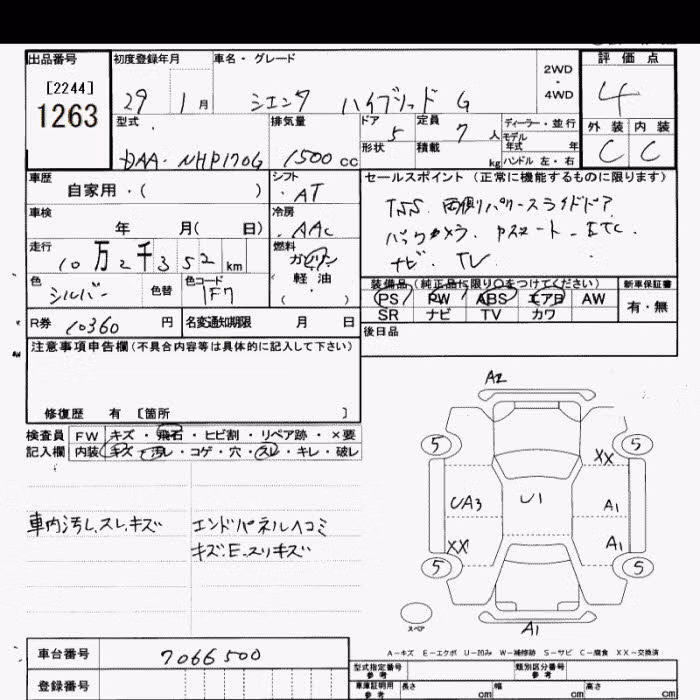 出品番号 初度登録年月 車名・グレード 評価点
[2244] 1263
29 1月 シエンタ ハイブリッド G 2WD・4WD 4
型式 排気量 ドア 定員 ディーラー・並行 外装 内装
DAA-NHP170G 1500cc 5 7人 モデル年式 年 C C
形状 積載 kg ハンドル 左・右
車歴 シフト セールスポイント(正常に機能するものに限ります)
自家用・( ) AT
TSS 両側パワースライドドア
車検 冷房
年 月( 日) AAC
バックカメラ ETC
走行 燃料 ナビ TV
10万2千352km ガソリン・軽油・( )
色 色替 色コード 装備品(純正品に限り○をつけてください) 新車保証書
シルバー 1F7 PS PW ABS エアB AW 有・無
SR ナビ TV カワ
R券 10360円 名変通知期限 月 日 後日品
注意事項申告欄(不具合内容等は具体的に記入して下さい)
修復歴 有 [箇所 ]
検査員 FW キズ・飛石・ヒビ割・リペア跡・×要
記入欄 内装 キズ・汚レ・コゲ・穴・スレ・キレ・破レ
A2
5 5
XX
UA3 U1 A1
XX A1
5 5
スペア
A1
車内汚し、スレ、キズ エンドパネルヘコミ
キズ、E、スリキズ
A-キズ E-エクボ U-凹み W-補修跡 S-サビ C-腐食 XX-交換済
車台番号 7066500
型式指定番号 参考 類別区分番号 参考
登録番号 車庫証明用 参考 長さ cm 幅 cm 高さ cm